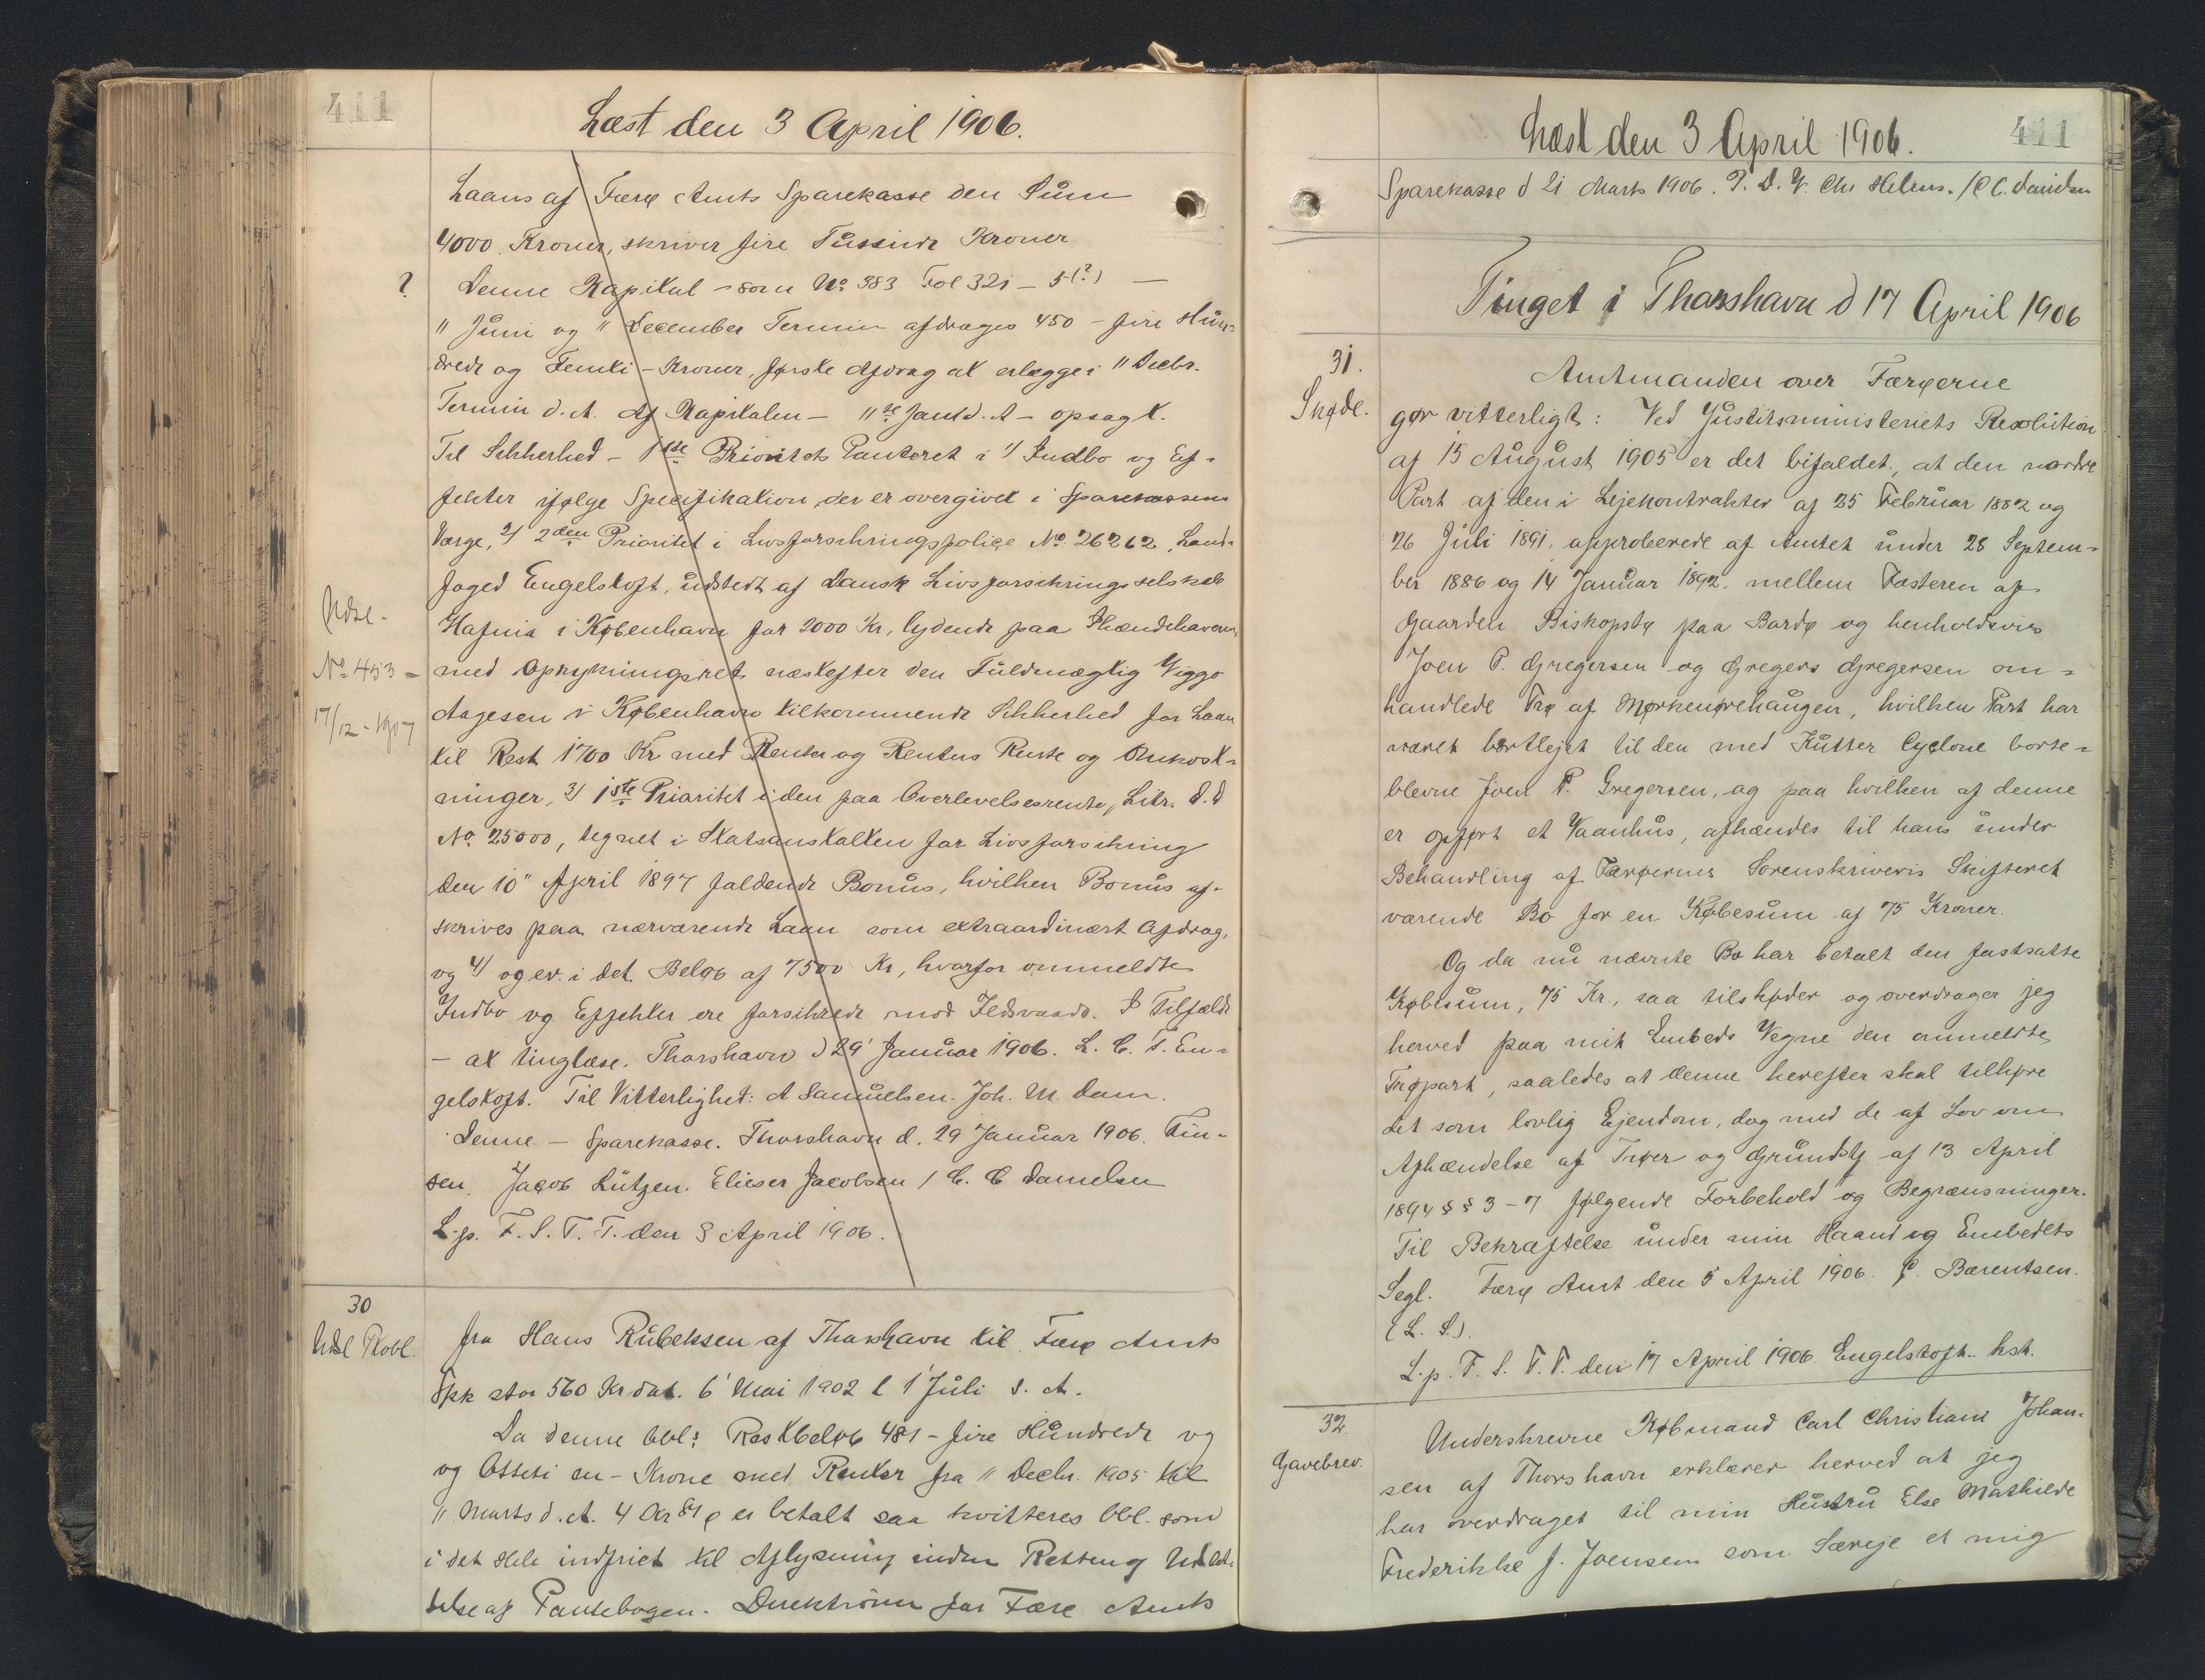 411
Læst den 3 April 1906.
Laans af Færø Amts Sparekasse den Sum
4000 Kroner, skriver fire Tusinde Kroner
? Denne Kapital - som No 383 Fol 321 - 5 (?) -
11 Juni og 11 December Termin afdrages 450 - fire Hun=
drede og Femti - Kroner, første Afdrag at erlægge i 11 Decbr.
Termin d. A. Af Kapitalen - 11te d. A - opsagt.
Til Sikkerhed - 1ste Prioritets Panteret i 1/ Indbo og Ef-
fekter ifølge Specifikation der er overgivet i Sparekassens
Værge, 2/ 2den Prioritet i Livsforsikringspolice No 26262, Land-
foged Engelstoft, udstedt af Dansk Livsforsikringsselskab
Hafnia i København for 2000 Kr, lydende paa Ihændehaveren,
med Oprykningsret næstefter den Fuldmægtig Viggo
Aagesen i København tilkommende Sikkerhed for Laan
til Rest 1700 Kr med Renter og Rentes Rente og Omkost-
ninger, 3/ 1ste Prioritet i den paa Overlevelsesrente, Litr. d. d
No 25000, tegnet i Statsanstalten for Livsforsikring
den 10" April 1897 faldende Bonus, hvilken Bonus af-
skrives paa nærværende Laan som extraordinært Afdrag,
og 4/ og ev. i det Beløb af 7500 Kr, hvorfor ommeldte
Indbo og Effekter ere forsikrede mod Ildsvaade. I Tilfælde
- at tinglæse. Thorshavn d 29' Januar 1906. L. C. T. En-
gelstoft. Til Vitterlighed: A Samuelsen. Joh. M. Dam.
Denne - Sparekasse. Thorshavn d. 29 Januar 1906. Fin-
sen. Jacob Lützen. Elieser Jacobsen / C. C Danielsen
L.p. F. S. T. T. den 3 April 1906.
Udsl.
No 453 -
17/12 - 1907
30
Udsl Pobl.
fra Hans Rubeksen af Thorshavn til Færø Amts
Spk stor 560 Kr dat. 6' Mai 1902 l 1' Juli s. A.
Da denne Obl: Restbeløb 481 - fire Hundrede og
og Otteti en - Krone med Renter fra 11 Decbr. 1905 til
11 Marts d. A. 4 Kr 81 ø er betalt saa kvitteres Obl. som
i det Hele indfriet til Aflysning inden Retten og Udslet-
telse af Pantebogen. Direktionen for Færø Amts
Læst den 3 April 1906.
411
Sparekasse d 21 Marts 1906. P. D. V. Chr Helms. / C C. Danielsen
Tinget i Thorshavn d 17 April 1906
31.
Skøde.
Amtmanden over Færøerne
gør vitterligt: Ved Justitsministeriets Resolution
af 15 August 1905 er det bifaldet, at den nordre
Part af den i Lejekontrakter af 25 Februar 1882 og
26 Juli 1891, approberede af Amtet under 28 Septem=
ber 1886 og 14 Januar 1892 mellem Fæsteren af
Gaarden Biskopstø paa Bordø og henholdsvis
Joen P. Gregersen og Gregers Gregersen om=
handlede Trø af Mørkenørehaugen, hvilken Part har
været bortlejet til den med Kutter Cyclone borte=
blevne Joen P. Gregersen, og paa hvilken af denne
er opført et Vaanhus, afhændes til hans under
Behandling af Færøernes Sorenskriveris Skifteret
værende Bo for en Købesum af 75 Kroner.
Og da nu nævnte Bo har betalt den fastsatte
Købesum, 75 Kr., saa tilskøder og overdrager jeg
herved paa mit Embeds Vegne den anmeldte
Trøpart, saaledes at denne herefter skal tilhøre
det som lovlig Ejendom, dog med de af Lov om
Afhændelse af Trøer og Grundstø af 13 April
1894 § § 3 - 7 følgende Forbehold og Begrænsninger.
Til Bekræftelse under min Haand og Embedets
Segl. Færø Amt den 5 April 1906. C. Bærentsen.
(L. S.).
L.p. F. S. T. T. den 17 April 1906. Engelstoft. kst.
32.
Gavebrev.
Underskrevne Købmand Carl Christian Johan-
sen af Thorshavn erklærer herved at jeg
har overdraget til min Hustru Else Mathilde
Frederikke f. Joensen som Særeje et mig